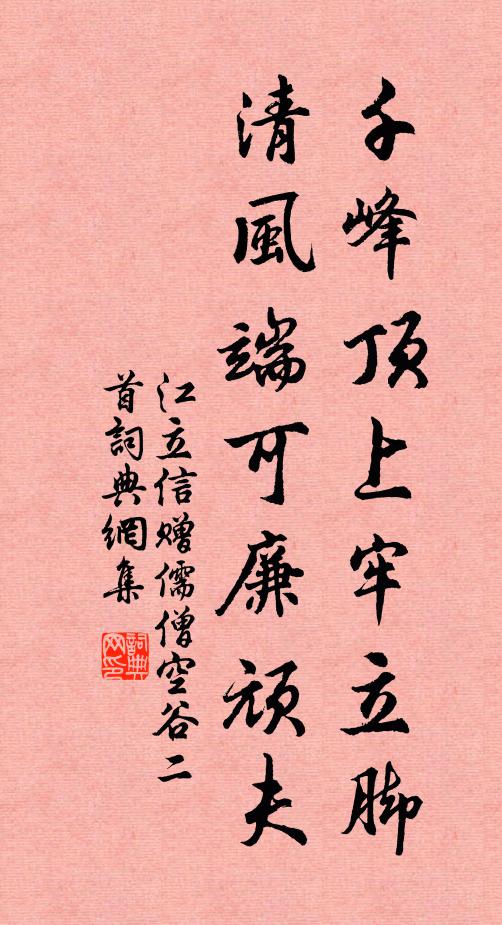 千峰顶上牢立脚
清風端可廉頑夫
江立信赠儒僧空谷二
首詞典網集
詞典网印